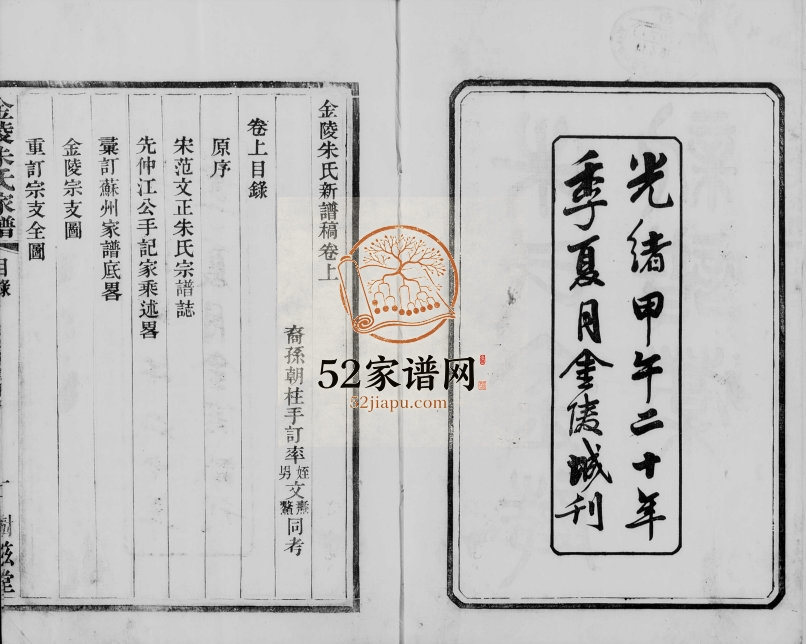 光緒甲午二十年
季夏月金陵城刊
金陵朱氏新譜稿卷上
裔孫朝柱手訂率姪男文同考
卷上目錄
原序
宋范文正朱氏宗譜誌
先仲江公手記家乘述畧
彚訂蘇州家譜底畧
金陵宗支圖
重訂宗支全圖
金陵朱氏家譜
目錄
52家谱网
52jiapu.com